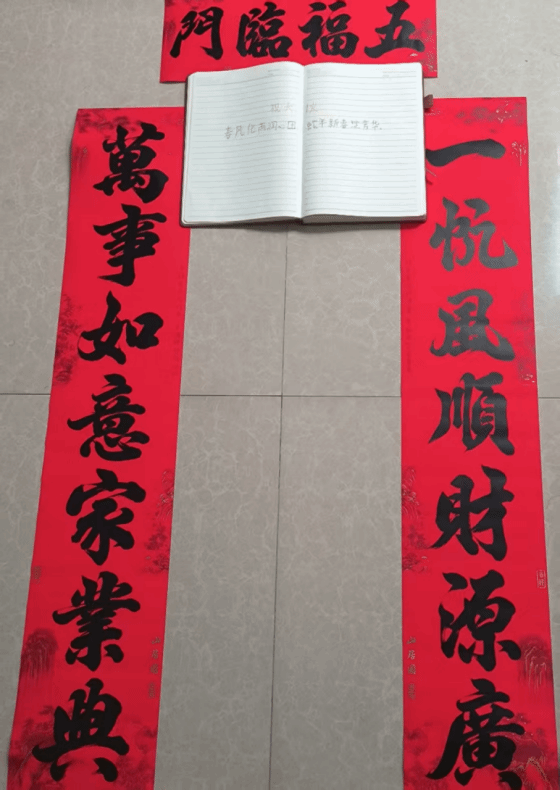 五福臨門
一帆風順財源廣
萬事如意家業興
蛇年新春